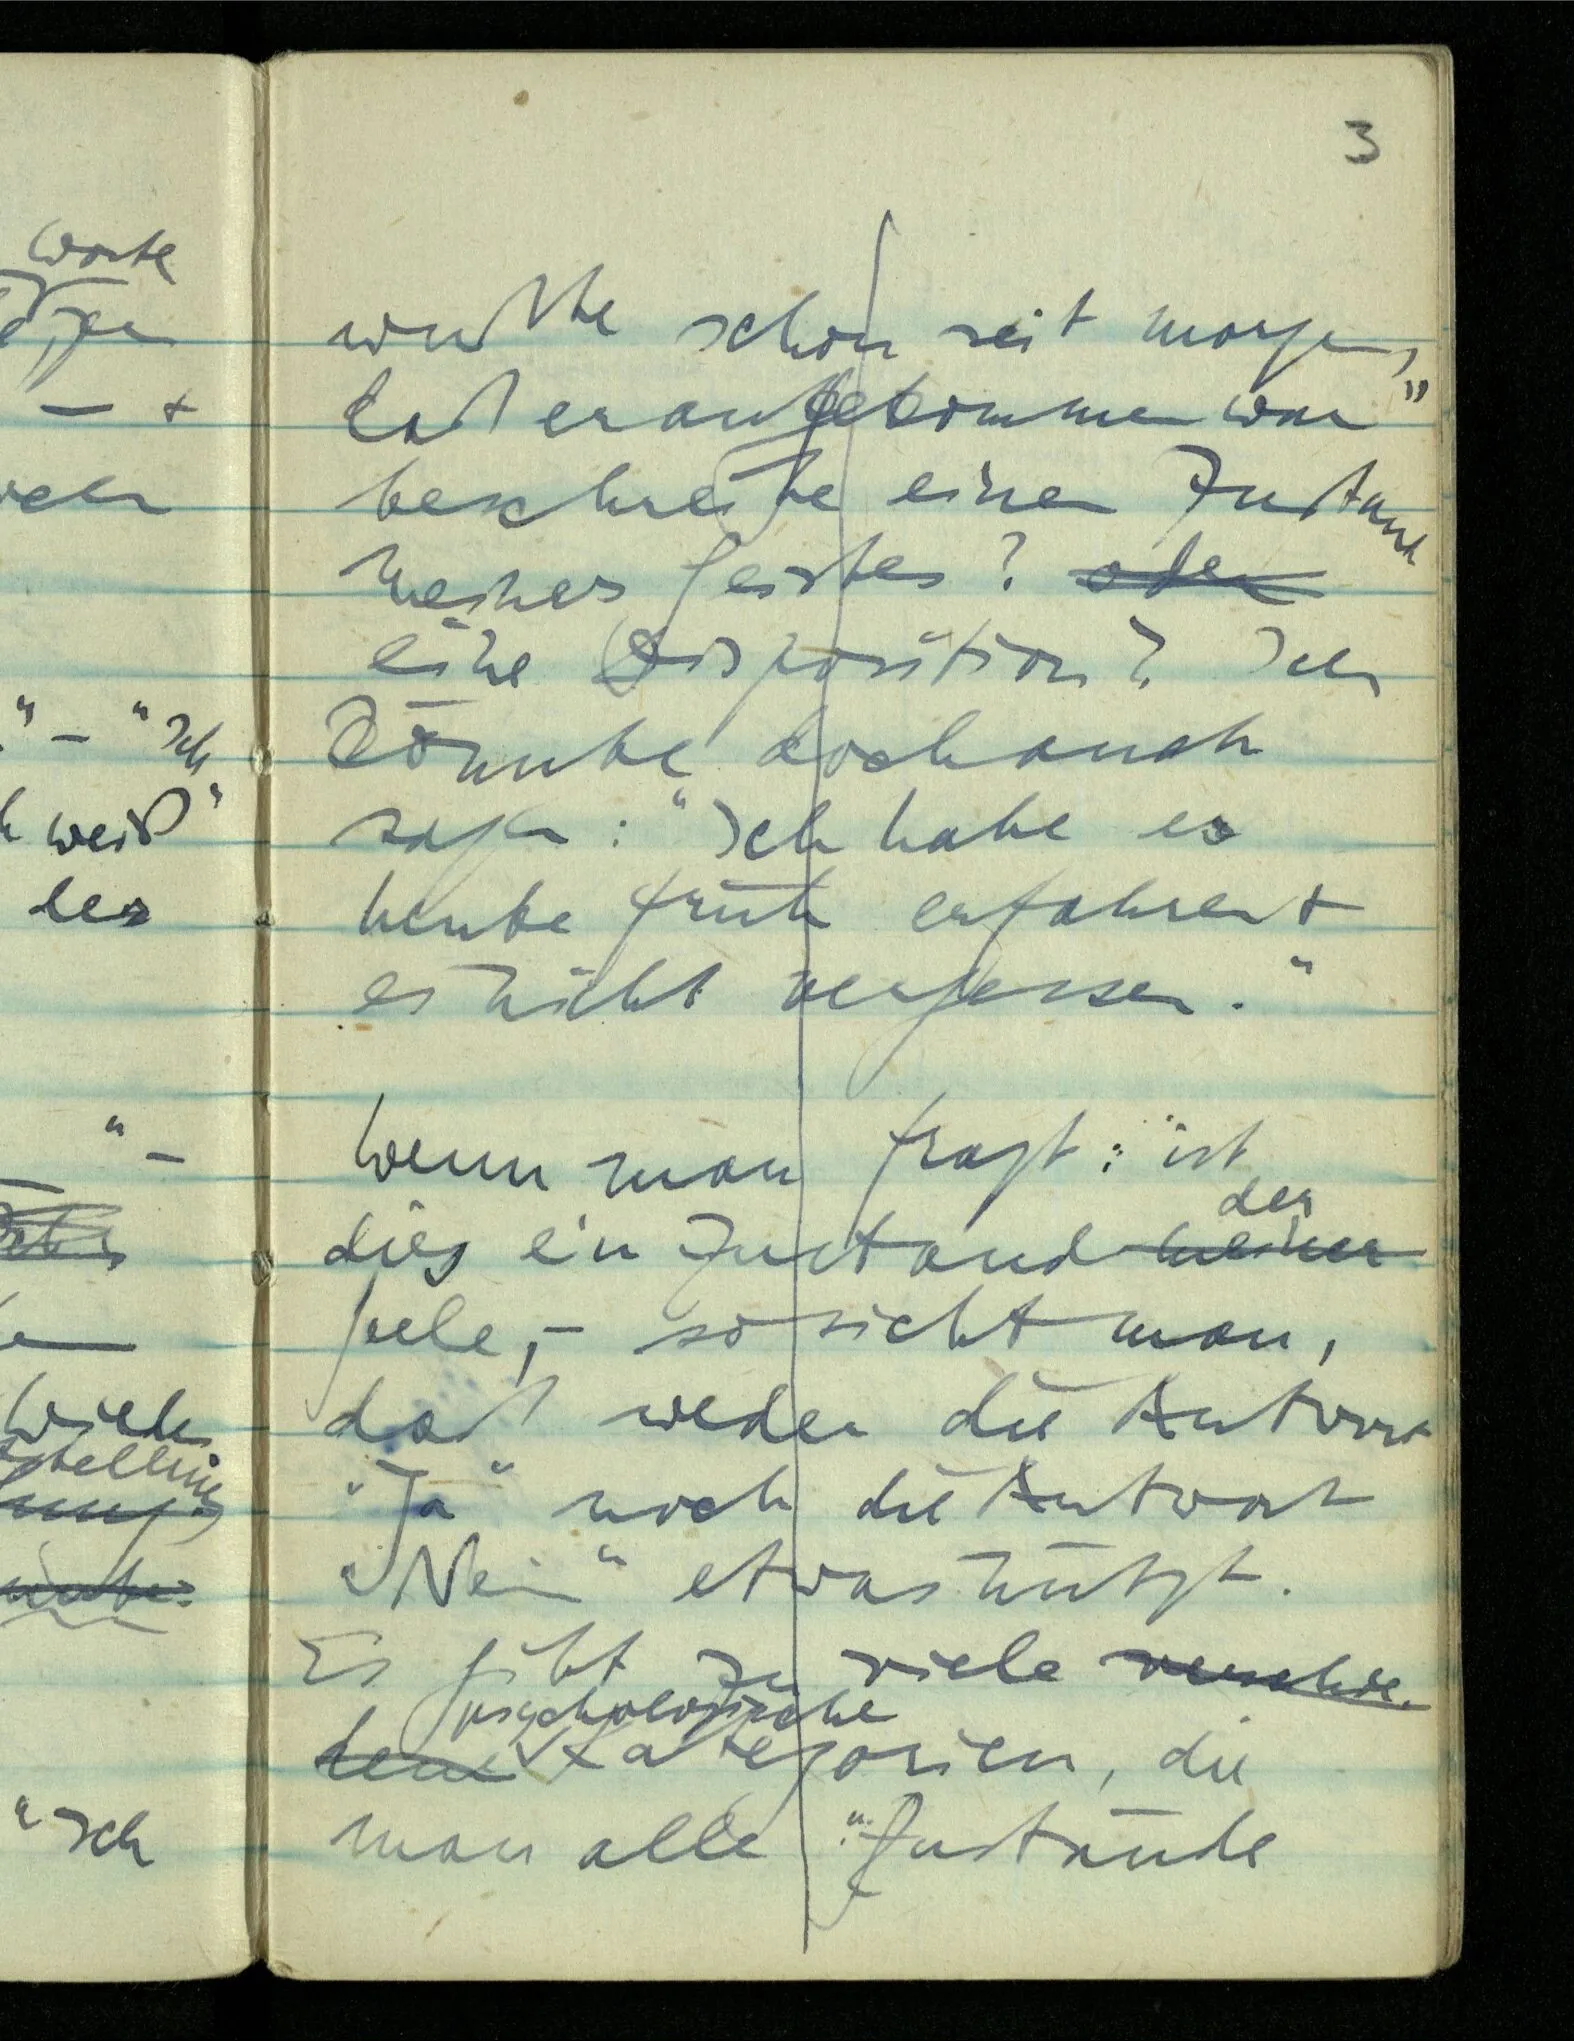 Worte
– +
"Ich
weiß"
des
" –
wieder
"Ich
3
wußte schon seit morgen,
daß er angekommen war"
beschreibe einen Zustand
meines Geistes? oder
eine Disposition? Ich
könnte doch auch
sagen: "Ich habe es
heute früh erfahren +
es nicht vergessen."
Wenn man fragt: "ist
der
dies ein Zustand meiner
Seele, – so sieht man,
daß weder die Antwort
"Ja" noch die Antwort
"Nein" etwas nützt.
Es gibt zu viele verschie-
psychologische
dene Kategorien, die
man alle "Zustände